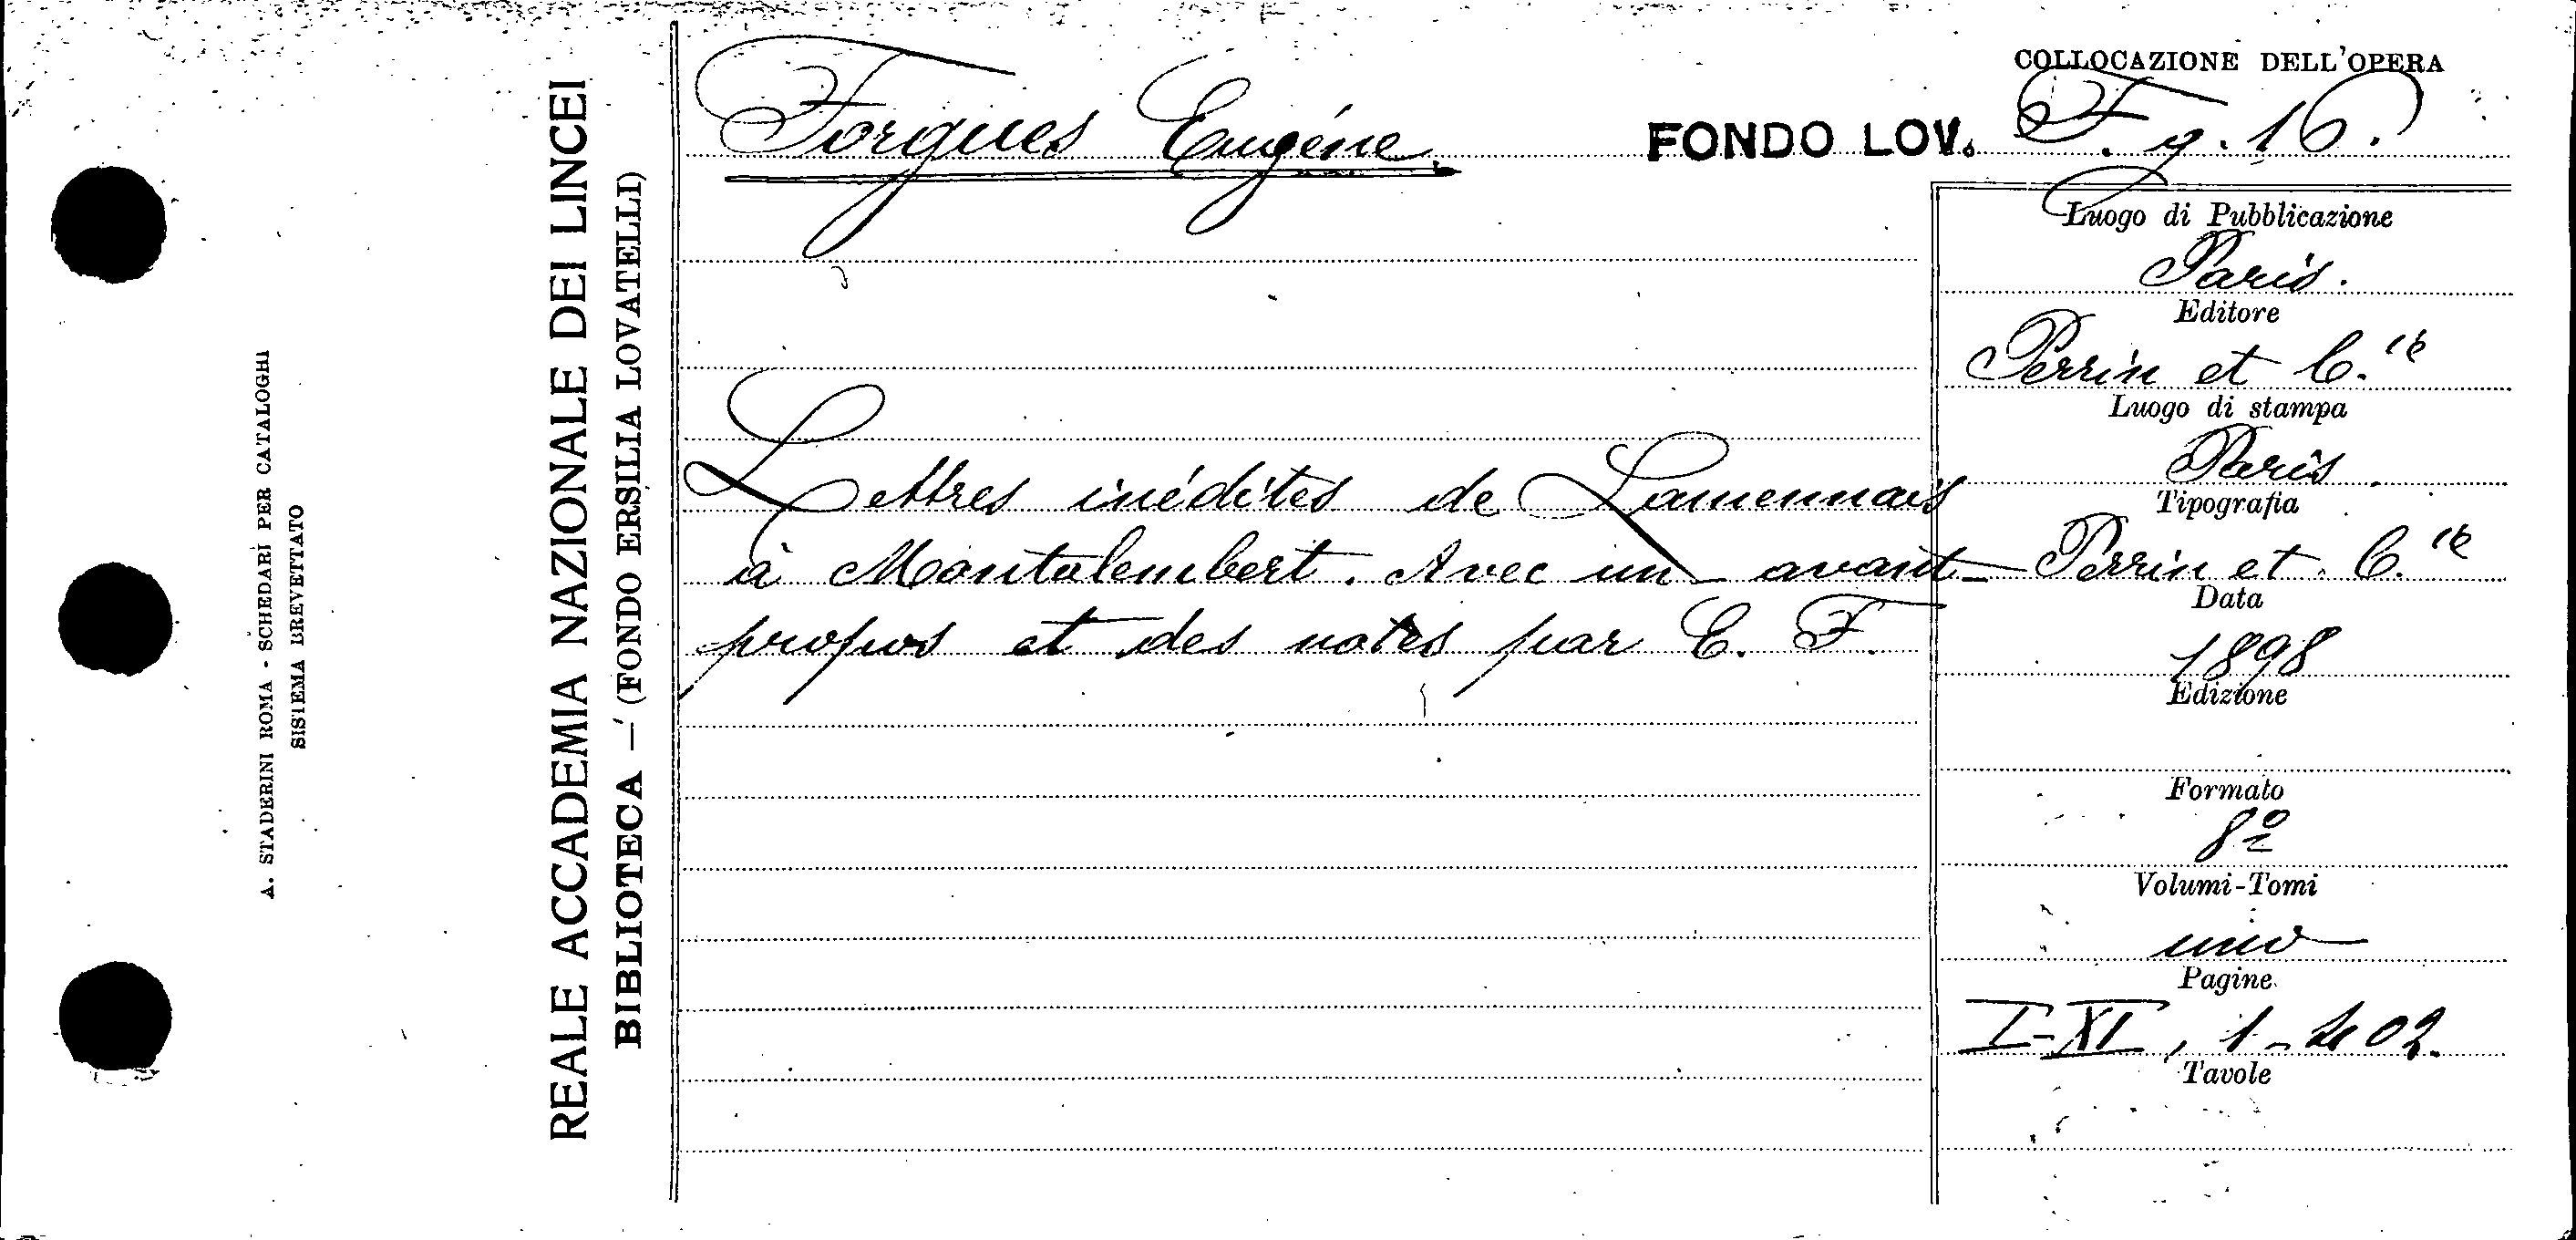 A. STADERINI ROMA - SCHEDARI PER CATALOGHI
SISTEMA BREVETTATO
REALE ACCADEMIA NAZIONALE DEI LINCEI
BIBLIOTECA — (FONDO ERSILIA LOVATELLI)
Forgues Eugéne.
Lettres inédites de Lamennais
à Montalembert. Avec un avant-
propos et des notes par E. F.
COLLOCAZIONE DELL'OPERA
FONDO LOV. F. g. 16.
Luogo di Pubblicazione
Paris.
Editore
Perrin et C.ie
Luogo di stampa
Paris.
Tipografia
Perrin et C.ie
Data
1898
Edizione
Formato
8º
Volumi-Tomi
uno
Pagine
I-XI, 1-402.
Tavole